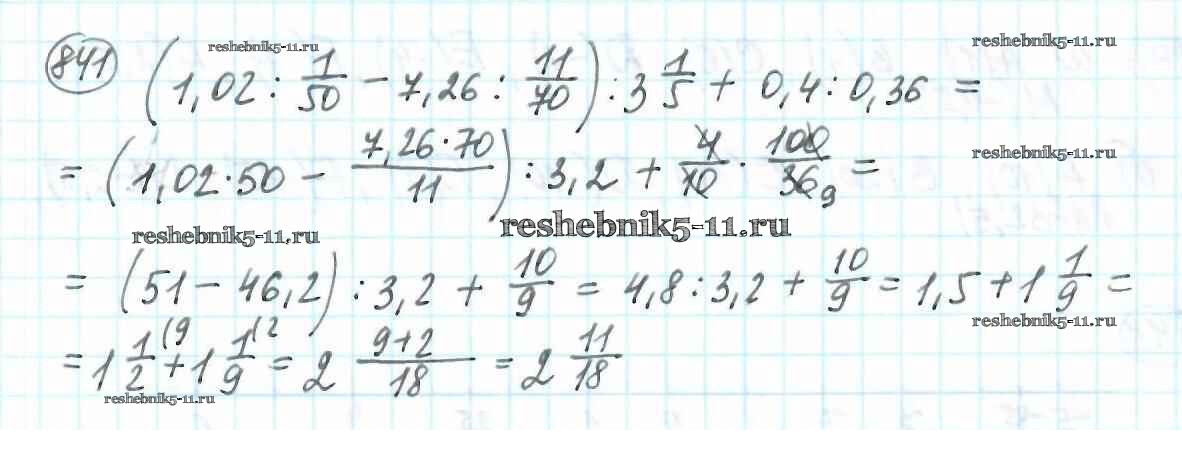 reshebnik5-11.ru
reshebnik5-11.ru
841 (1,02 : 1/50 − 7,26 : 11/70) : 3 1/5 + 0,4 : 0,36 =
= (1,02 · 50 − 7,26 · 70/11) : 3,2 + 4/10 · 100/36 9 =
reshebnik5-11.ru
reshebnik5-11.ru
reshebnik5-11.ru
= (51 − 46,2) : 3,2 + 10/9 = 4,8 : 3,2 + 10/9 = 1,5 + 1 1/9 =
reshebnik5-11.ru
= 1 1/2 (9 + 1 1/9 (2 = 2 9+2/18 = 2 11/18
reshebnik5-11.ru